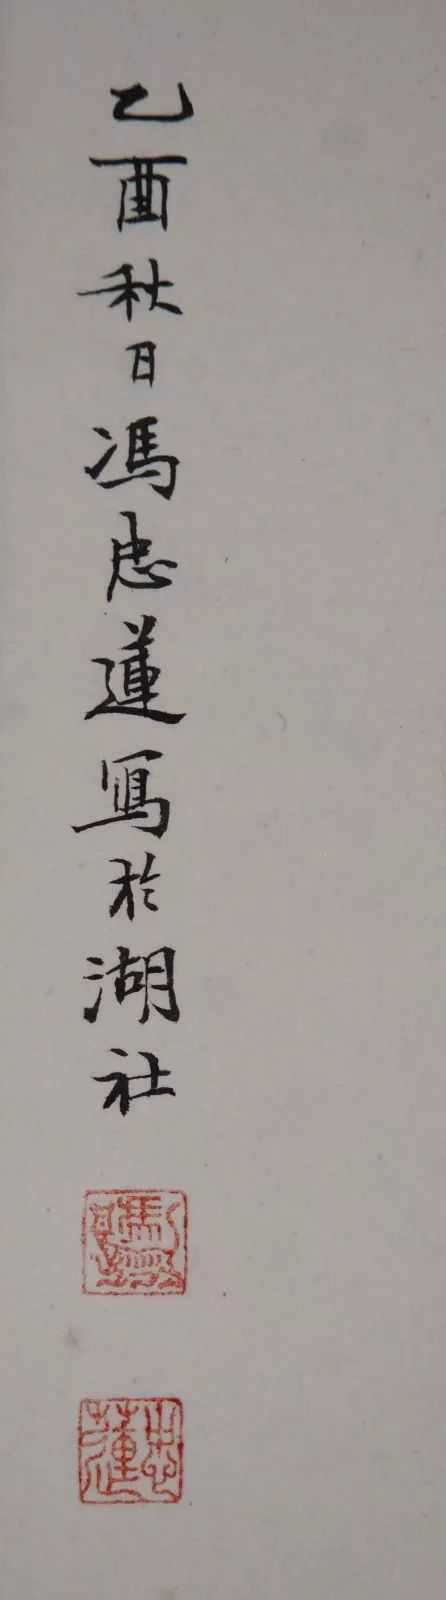 乙酉秋日馮忠蓮寫於湖社
忠蓮